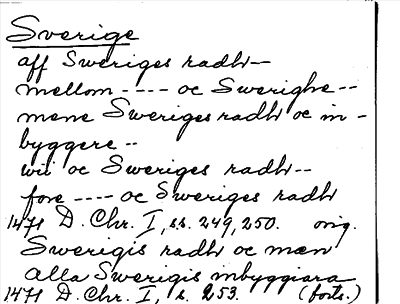 Sverige
aff Sweriges radh—
mellom ---- oc Swerighe --
mene Sweriges radh oc in-
byggere --
wii oc Sweriges radh--
fore ---- oc Sweriges radh
1471 D. Chr. I, ss. 249, 250. orig.
Swerigis radh oc mæn
alla Swerigis inbyggiara
1471 D. Chr. I, s. 253. (forts.)